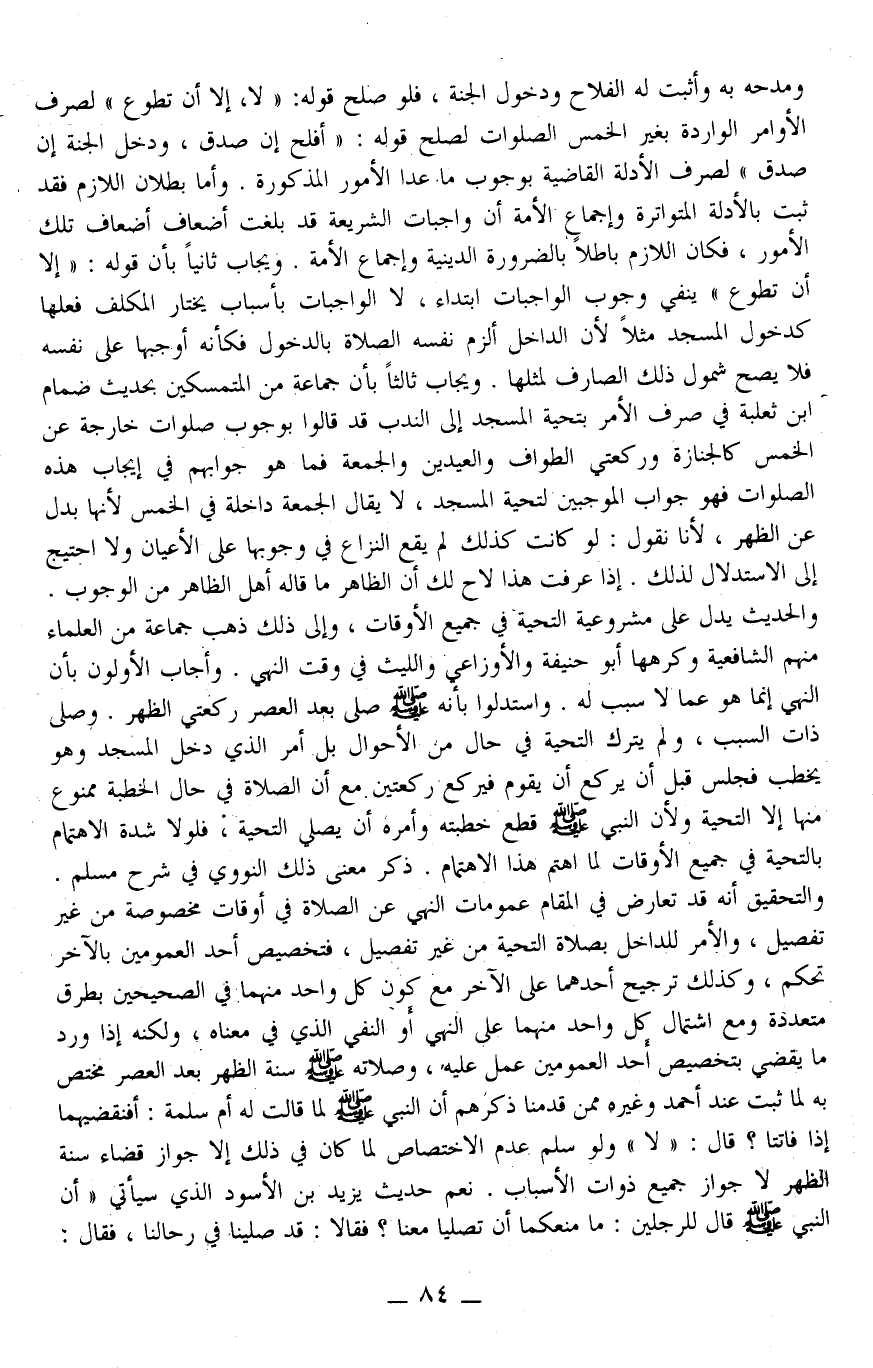 ومدحه به وأثبت له الفلاح ودخول الجنة ، فلو صلح قوله: « لا، إلا أن تطوع » لصرف
الأوامر الواردة بغير الخمس الصلوات لصلح قوله : « أفلح إن صدق ، ودخل الجنة إن
صدق » لصرف الأدلة القاضية بوجوب ما عدا الأمور المذكورة . وأما بطلان اللازم فقد
ثبت بالأدلة المتواترة وإجماع الأمة أن واجبات الشريعة قد بلغت أضعاف أضعاف تلك
الأمور ، فكان اللازم باطلاً بالضرورة الدينية وإجماع الأمة . ويجاب ثانياً بأن قوله : « إلا
أن تطوع » ينفي وجوب الواجبات ابتداء ، لا الواجبات بأسباب يختار المكلف فعلها
كدخول المسجد مثلاً لأن الداخل ألزم نفسه الصلاة بالدخول فكأنه أوجبها على نفسه
فلا يصح شمول ذلك الصارف لمثلها . ويجاب ثالثاً بأن جماعة من المتمسكين بحديث ضمام
ابن ثعلبة في صرف الأمر بتحية المسجد إلى الندب قد قالوا بوجوب صلوات خارجة عن
الخمس كالجنازة وركعتي الطواف والعيدين والجمعة فما هو جوابهم في إيجاب هذه
الصلوات فهو جواب الموجبين لتحية المسجد ، لا يقال الجمعة داخلة في الخمس لأنها بدل
عن الظهر ، لأنا نقول : لو كانت كذلك لم يقع النزاع في وجوبها على الأعيان ولا احتيج
إلى الاستدلال لذلك . إذا عرفت هذا لاح لك أن الظاهر ما قاله أهل الظاهر من الوجوب .
والحديث يدل على مشروعية التحية في جميع الأوقات ، وإلى ذلك ذهب جماعة من العلماء
منهم الشافعية وكرهها أبو حنيفة والأوزاعي والليث في وقت النهي . وأجاب الأولون بأن
النهي إنما هو عما لا سبب له . واستدلوا بأنه ﷺ صلى بعد العصر ركعتي الظهر . وصلى
ذات السبب ، ولم يترك التحية في حال من الأحوال بل أمر الذي دخل المسجد وهو
يخطب فجلس قبل أن يركع أن يقوم فيركع ركعتين مع أن الصلاة في حال الخطبة ممنوع
منها إلا التحية ولأن النبي ﷺ قطع خطبته وأمره أن يصلي التحية ، فلولا شدة الاهتمام
بالتحية في جميع الأوقات لما اهتم هذا الاهتمام . ذكر معنى ذلك النووي في شرح مسلم .
والتحقيق أنه قد تعارض في المقام عمومات النهي عن الصلاة في أوقات مخصوصة من غير
تفصيل ، والأمر للداخل بصلاة التحية من غير تفصيل ، فتخصيص أحد العمومين بالآخر
تحكم ، وكذلك ترجيح أحدهما على الآخر مع كون كل واحد منهما في الصحيحين بطرق
متعددة ومع اشتمال كل واحد منهما على النهي أو النفي الذي في معناه ، ولكنه إذا ورد
ما يقضي بتخصيص أحد العمومين عمل عليه ، وصلاته ﷺ سنة الظهر بعد العصر مختص
به لما ثبت عند أحمد وغيره ممن قدمنا ذكرهم أن النبي ﷺ لما قالت له أم سلمة : أفنقضيهما
إذا فاتتا ؟ قال : « لا » ولو سلم عدم الاختصاص لما كان في ذلك إلا جواز قضاء سنة
الظهر لا جواز جميع ذوات الأسباب . نعم حديث يزيد بن الأسود الذي سيأتي « أن
النبي ﷺ قال للرجلين : ما منعكما أن تصليا معنا ؟ فقالا : قد صلينا في رحالنا ، فقال :
— ٨٤ —